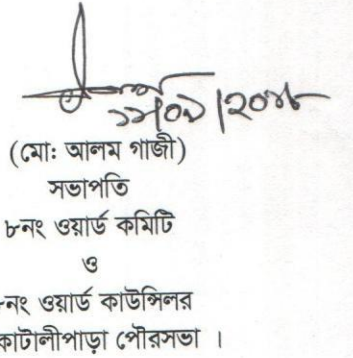 (মো: আলম গাজী)
সভাপতি
৮নং ওয়ার্ড কমিটি
ও
নং ওয়ার্ড কাউন্সিলর
কোটালীপাড়া পৌরসভা ।